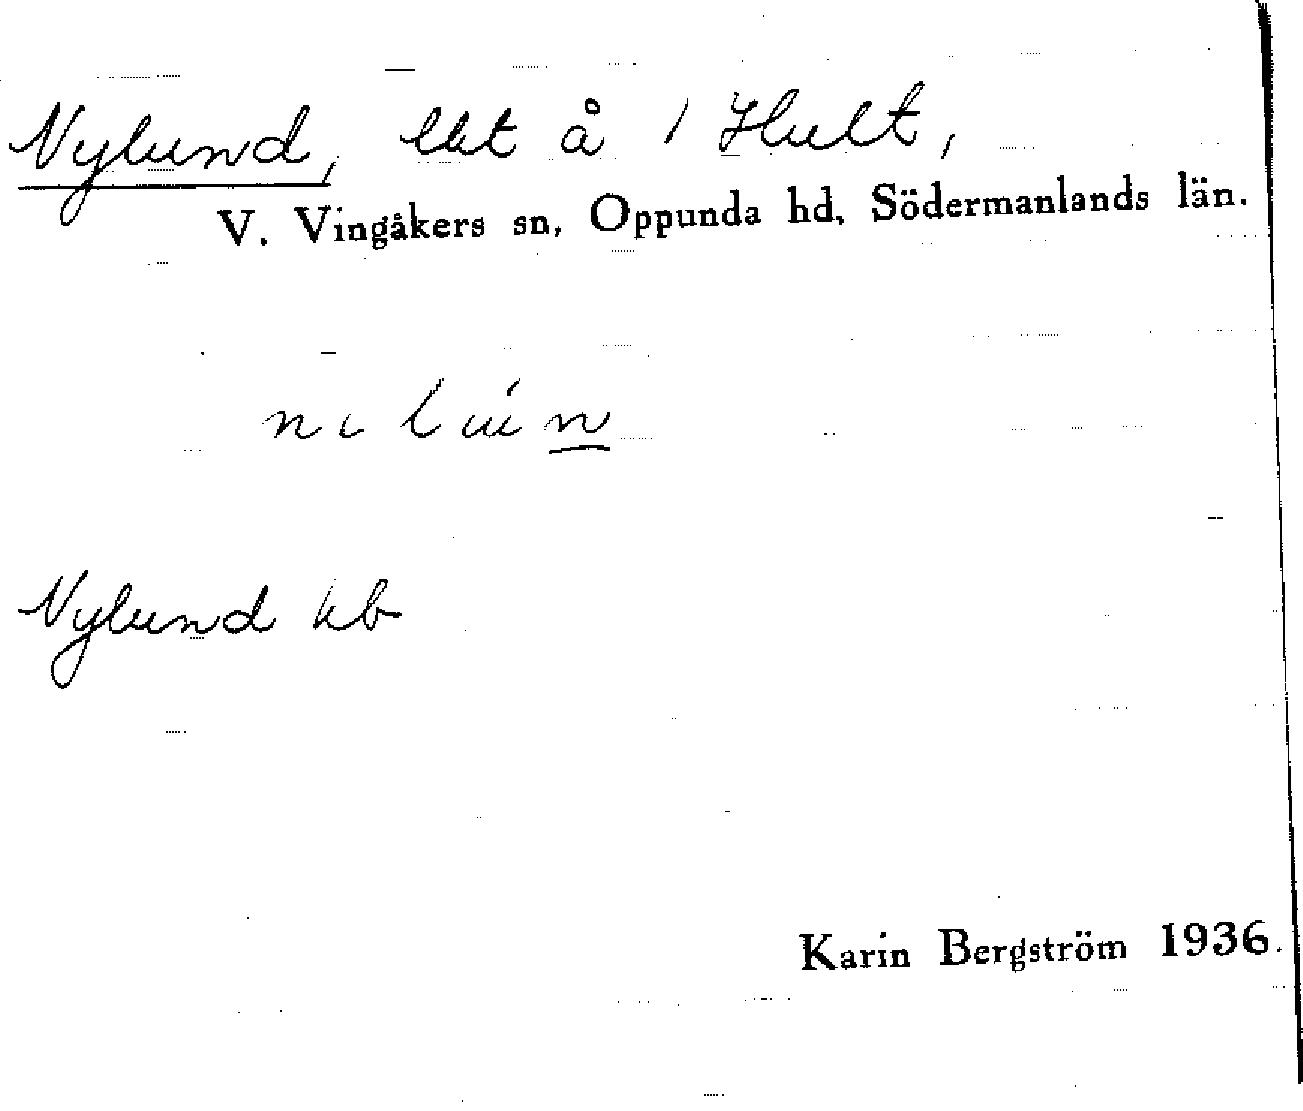 Nylund, lht å 1 Hult,
V. Vingåkers sn, Oppunda hd, Södermanlands län.
Nylund kb
Karin Bergström 1936.